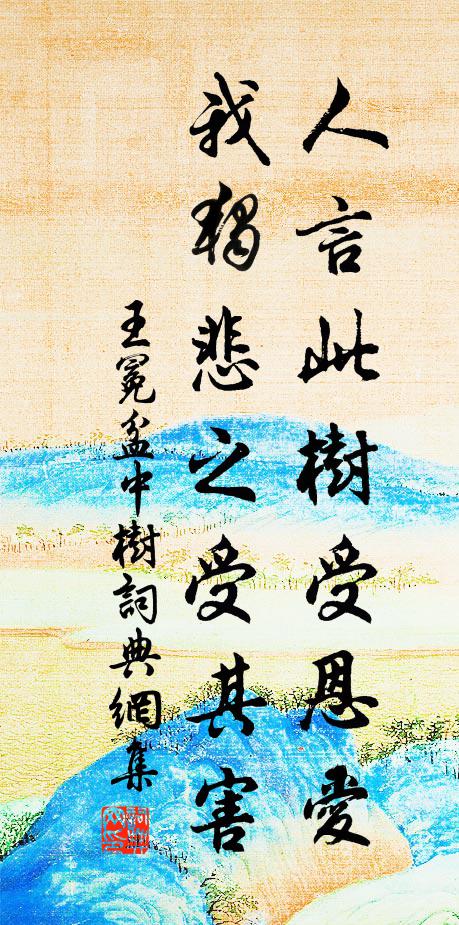 人言此樹受恩愛
我獨悲之受其害
王冕盆中樹詞典網集